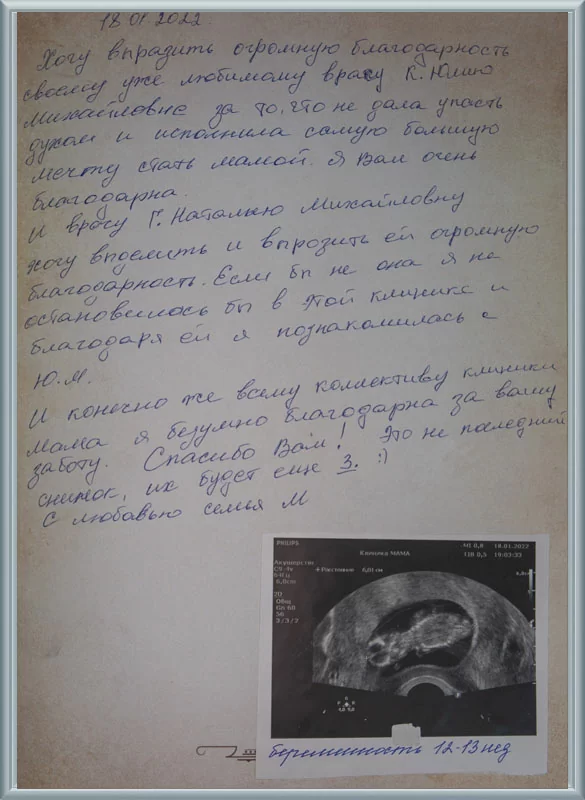 18.01.2022.
Хочу выразить огромную благодарность
своему уже любимому врачу К. Юлию
Михайловне за то, что не дала упасть
духом и исполнила самую большую
мечту стать мамой. Я Вам очень
благодарна.
И врачу Г. Наталью Михайловну
хочу выделить и вырозить ей огромную
благодарность. Если бы не она я не
остановилось бы в этой клинике и
благодаря ей я познакомилась с
Ю.М.
И конечно же всему коллективу клиники
мама я безумно благодарна за вашу
заботу. Спасибо Вам! Это не последний
снимок, их будет еще 3. :)
С любавью семья М
PHILIPS
Клиника МАМА
MI 0,8 18.01.2022
19:03:33
Акушерство
C9-4v
64Гц
6,0cm
+ Расстояние 6,01 см
2D
Общ
Gn 60
56
3/3/2
беременность 12-13 нед